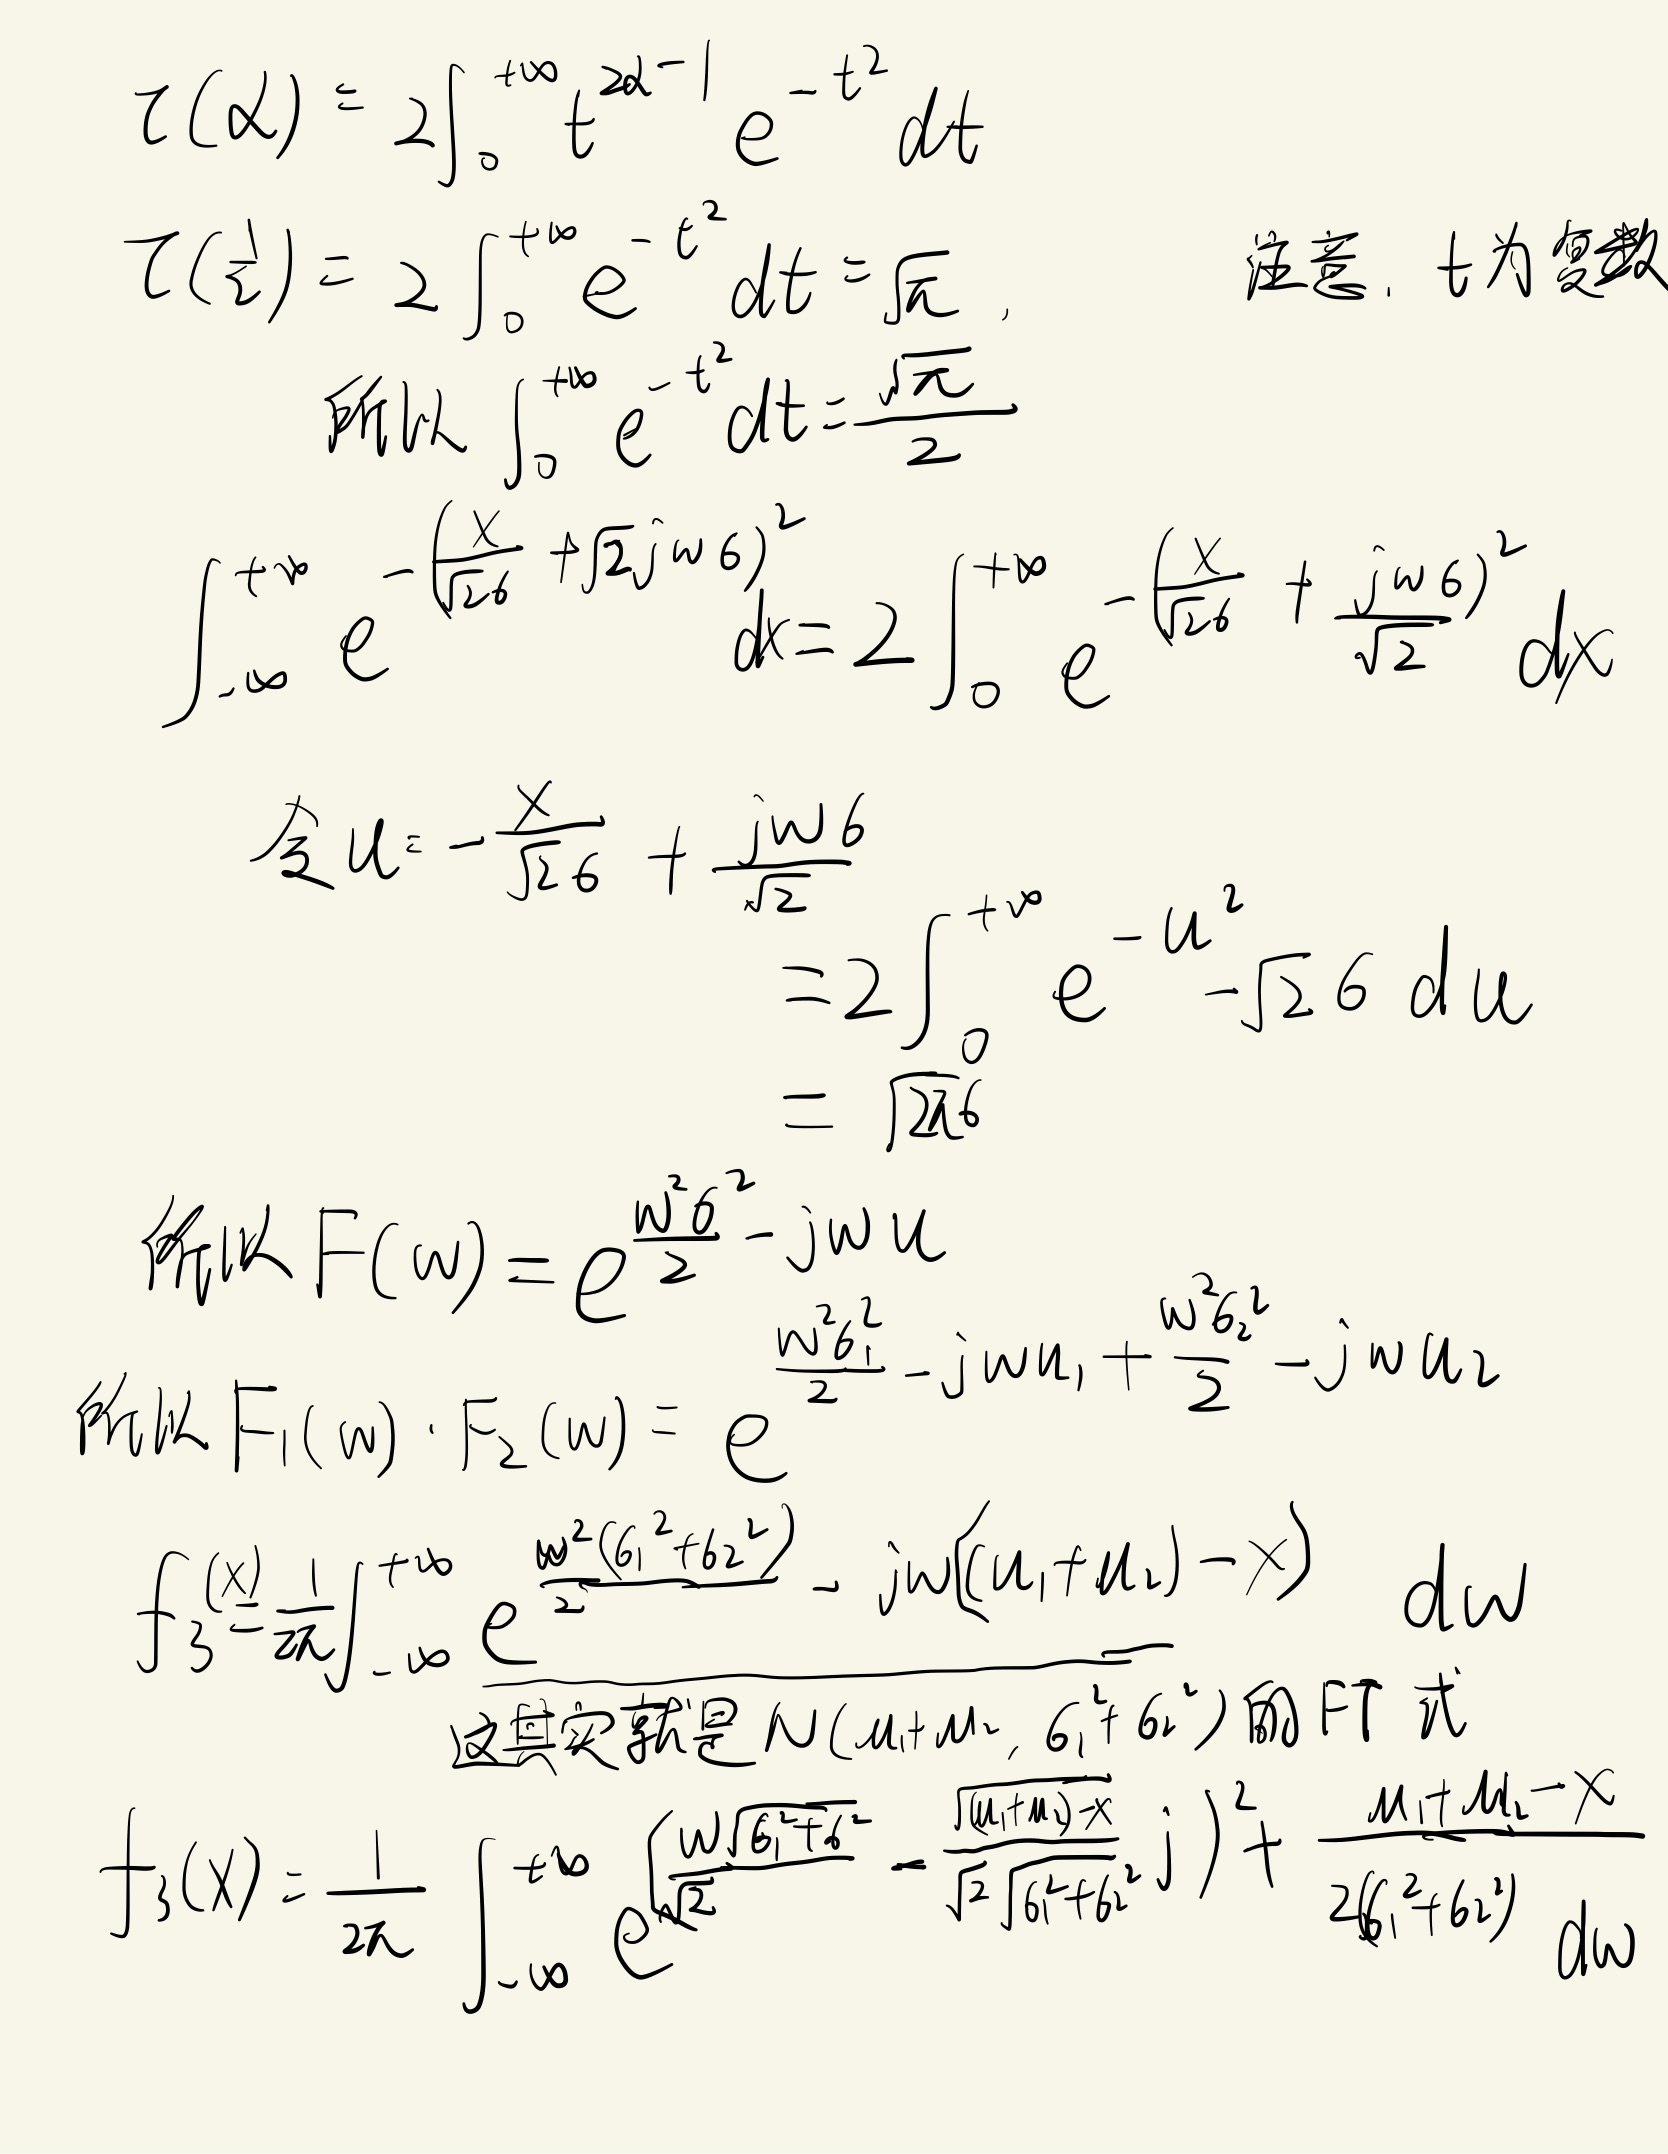 τ(α) = 2∫₀^{+∞} t^{2α-1} e^{-t²} dt
τ(1/2) = 2∫₀^{+∞} e^{-t²} dt = √π , 注意. t为复数
所以 ∫₀^{+∞} e^{-t²} dt = √π/2
∫_{-∞}^{+∞} e^{-(x/(√2σ) + √2jwσ)²} dx = 2∫₀^{+∞} e^{-(x/(√2σ) + jwσ/√2)²} dx
令 u = -x/(√2σ) + jwσ/√2
= 2∫₀^{+∞} e^{-u²} -√2σ du
= √2πσ
所以 F(w) = e^{w²σ²/2 - jwu}
所以 F₁(w)·F₂(w) = e^{w²σ₁²/2 - jwu₁ + w²σ₂²/2 - jwu₂}
f₃(x) = 1/2π ∫_{-∞}^{+∞} e^{w²(σ₁²+σ₂²)/2 - jw((u₁+u₂)-x)} dw
这其实就是 N(u₁+u₂, σ₁²+σ₂²) 的 FT 式
f₃(x) = 1/2π ∫_{-∞}^{+∞} e^{(w√(σ₁²+σ²)/√2 - √((u₁+u₂)-x)/(√2√(σ₁²+σ₂²)) j)² + (u₁+u₂-x)/(2(σ₁²+σ₂²))} dw